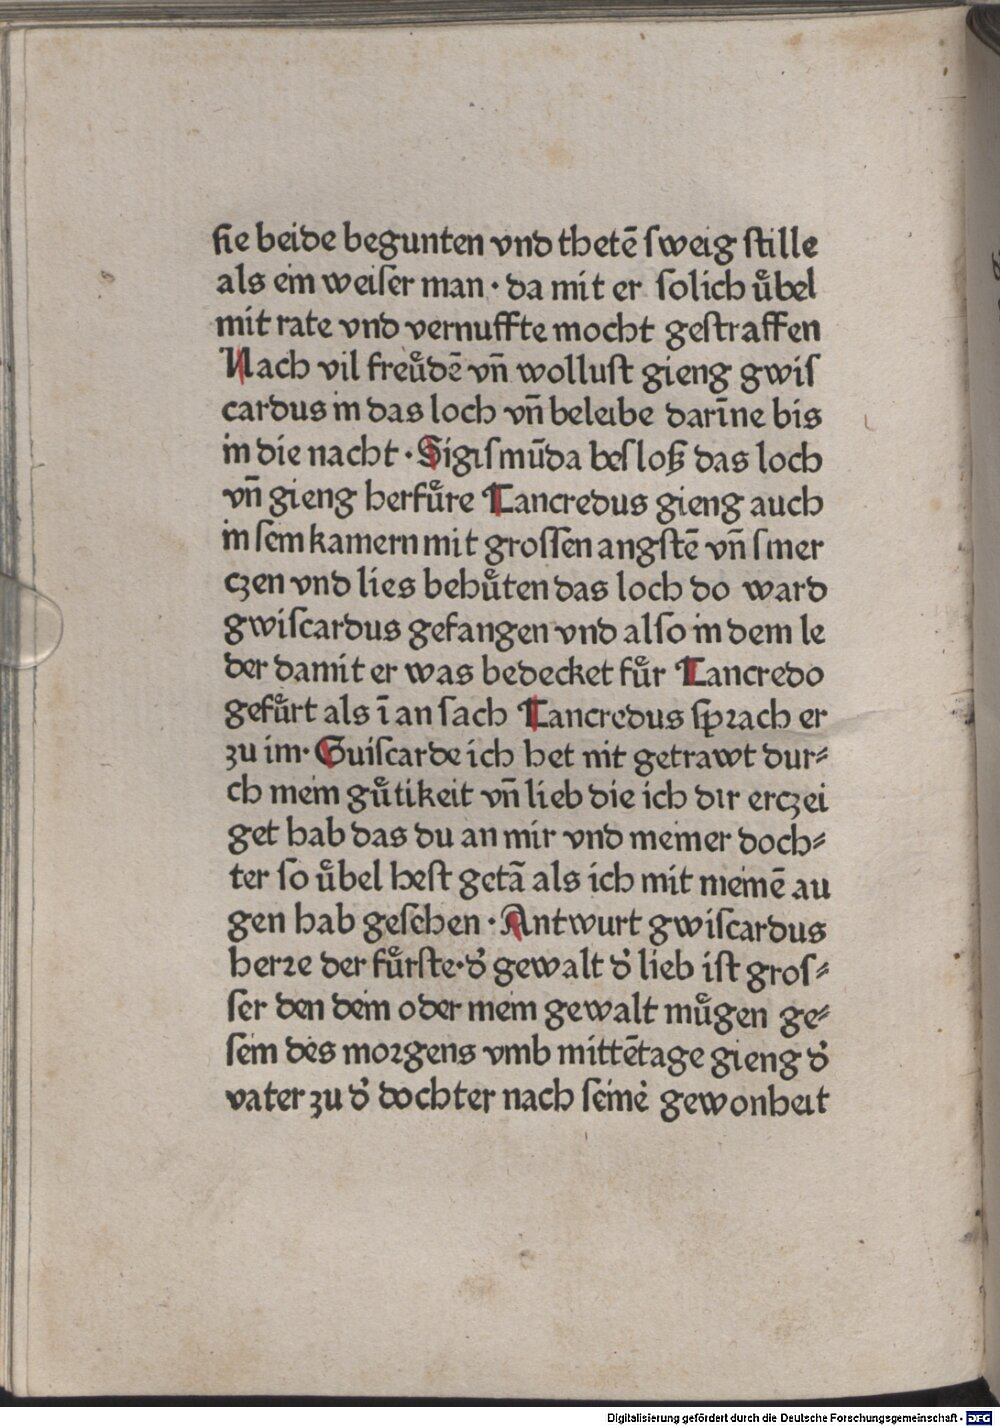 ſie beide begunten vnd thetē ſweig ſtille
als ein weiſer man · da mit er ſolich uͤbel
mit rate vnd vernuffte mocht geſtraffen
Nach vil freuͤdē vn̄ wolluſt gieng gwiſ
cardus in das loch vn̄ beleibe darīne bis
in die nacht · Sigiſmūda beſloß das loch
vn̄ gieng herfuͤre Tancredus gieng auch
in ſein kamern mit groſſen angſtē vn̄ ſmer
czen vnd lies behuͤten das loch do ward
gwiſcardus gefangen vnd alſo in dem le
der damit er was bedecket fuͤr Tancredo
gefuͤrt als ī an ſach Tancredus ſpꝛach er
zu im· Guiſcarde ich het nit getrawt dur⸗
ch mein guͤtikeit vn̄ lieb die ich dir erczei
get hab das du an mir vnd meiner doch⸗
ter ſo uͤbel heſt getā als ich mit meinē au
gen hab geſehen · Antwurt gwiſcardus
herꝛe der fuͤrſte·d' gewalt d' lieb iſt groſ⸗
ſer den dein oder mein gewalt muͤgen ge⸗
ſein des moꝛgens vmb mittētage gieng d'
vater zu d' dochter nach ſeine' gewonheit
Digitalisierung gefördert durch die Deutsche Forschungsgemeinschaft - DFG